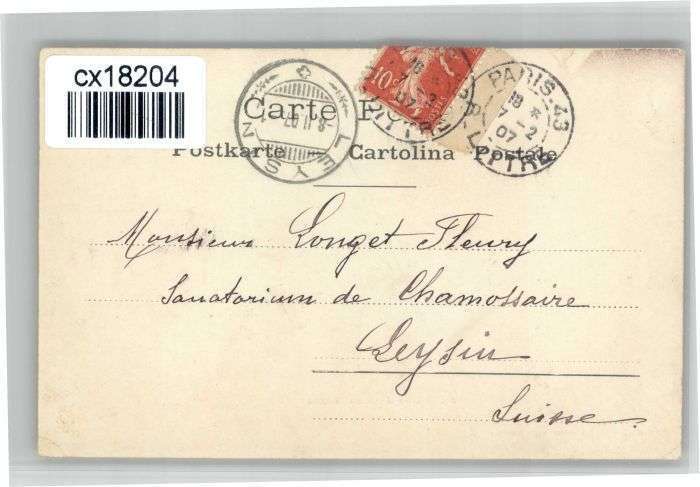 cx18204
Carte
Postkarte Cartolina Postale
10
LEYSIN
PARIS.43
18 *
7 - 2
07
Monsieur Longet Fleury
Sanatorium de Chamossaire
Leysin
Suisse.